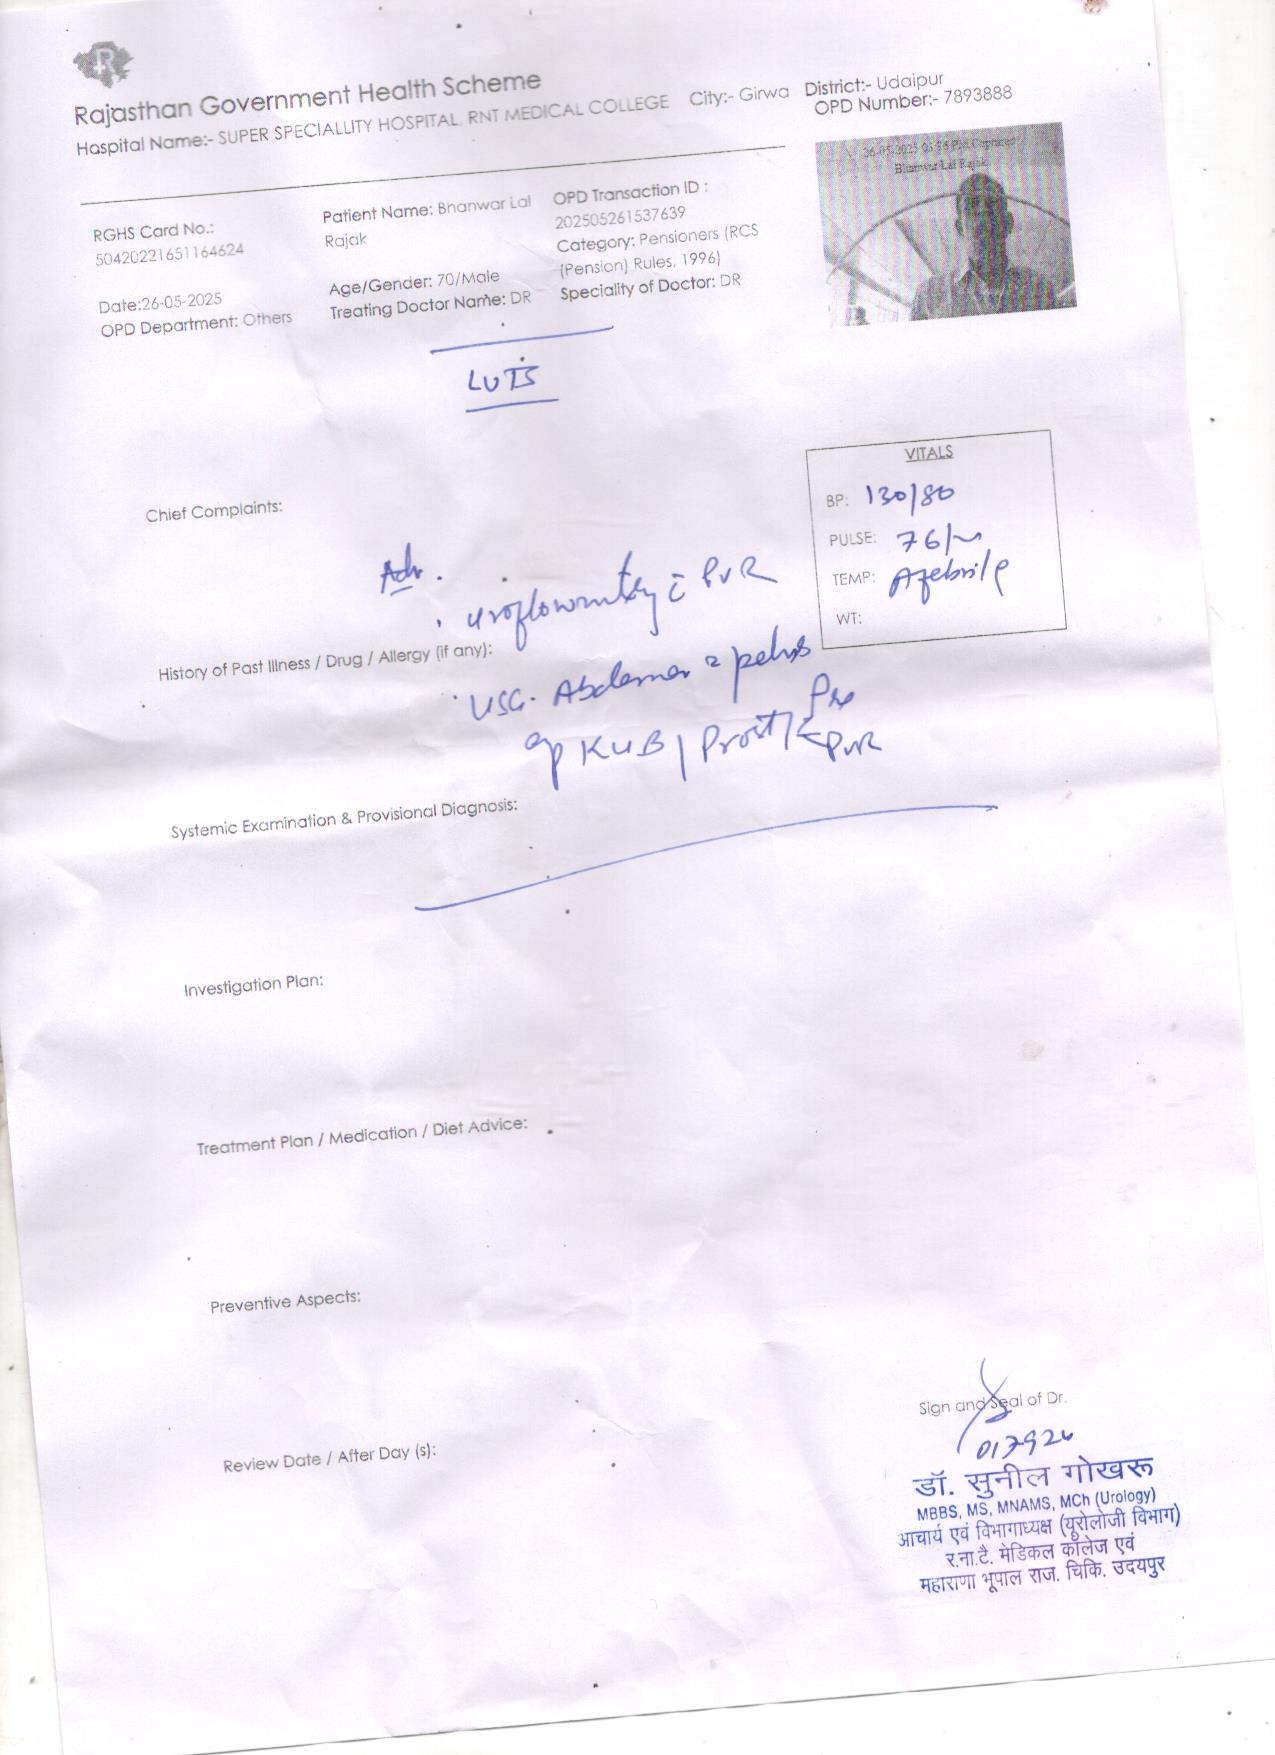 Rajasthan Government Health Scheme
Haspital Name:- SUPER SPECIALLITY HOSPITAL, RNT MEDICAL COLLEGE City:- Girwa District:- Udaipur
OPD Number:- 7893888
26-05-2025 03:36 PM Captured
Bhanwar Lal Rajak
RGHS Card No.:
50420221651164624
Date:26-05-2025
OPD Department: Others
Patient Name: Bhanwar Lal
Rajak
Age/Gender: 70/Male
Treating Doctor Name: DR
OPD Transaction ID :
202505261537639
Category: Pensioners (RCS
(Pension) Rules, 1996)
Speciality of Doctor: DR
LUTS
VITALS
BP: 130/80
PULSE: 76/
TEMP: Afebrile
WT:
Chief Complaints:
Adv.
uroflowmetry c̄ PVR
History of Past Illness / Drug / Allergy (if any):
USG. Abdomen pelvis
KUB / Prost / Pre
PVR
Systemic Examination & Provisional Diagnosis:
Investigation Plan:
Treatment Plan / Medication / Diet Advice:
Preventive Aspects:
Review Date / After Day (s):
Sign and Seal of Dr.
017926
डॉ. सुनील गोखरू
MBBS, MS, MNAMS, MCh (Urology)
आचार्य एवं विभागाध्यक्ष (यूरोलोजी विभाग)
र.ना.टै. मेडिकल कॉलेज एवं
महाराणा भूपाल राज. चिकि. उदयपुर